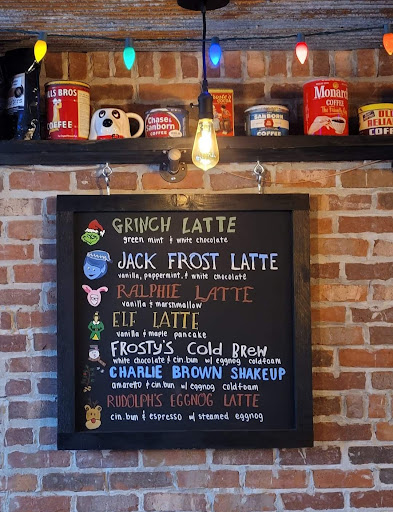 LLS BROS
COFFEE
CHASE AND
SANBORN
COFFEE
SANBORN
COFFEE
Monarch
COFFEE
OLD
RELIABLE
COFFEE
GRINCH LATTE
green mint & white chocolate
JACK FROST LATTE
vanilla, peppermint, & white chocolate
RALPHIE LATTE
vanilla & marshmallow
ELF LATTE
vanilla & maple pancake
FROSTY'S Cold BREW
white chocolate & cin.bun w/ eggnog coldfoam
CHARLIE BROWN SHAKEUP
amaretto & cin.bun w/ eggnog coldfoam
RUDOLPH'S EGGNOG LATTE
cin.bun & espresso w/ steamed eggnog